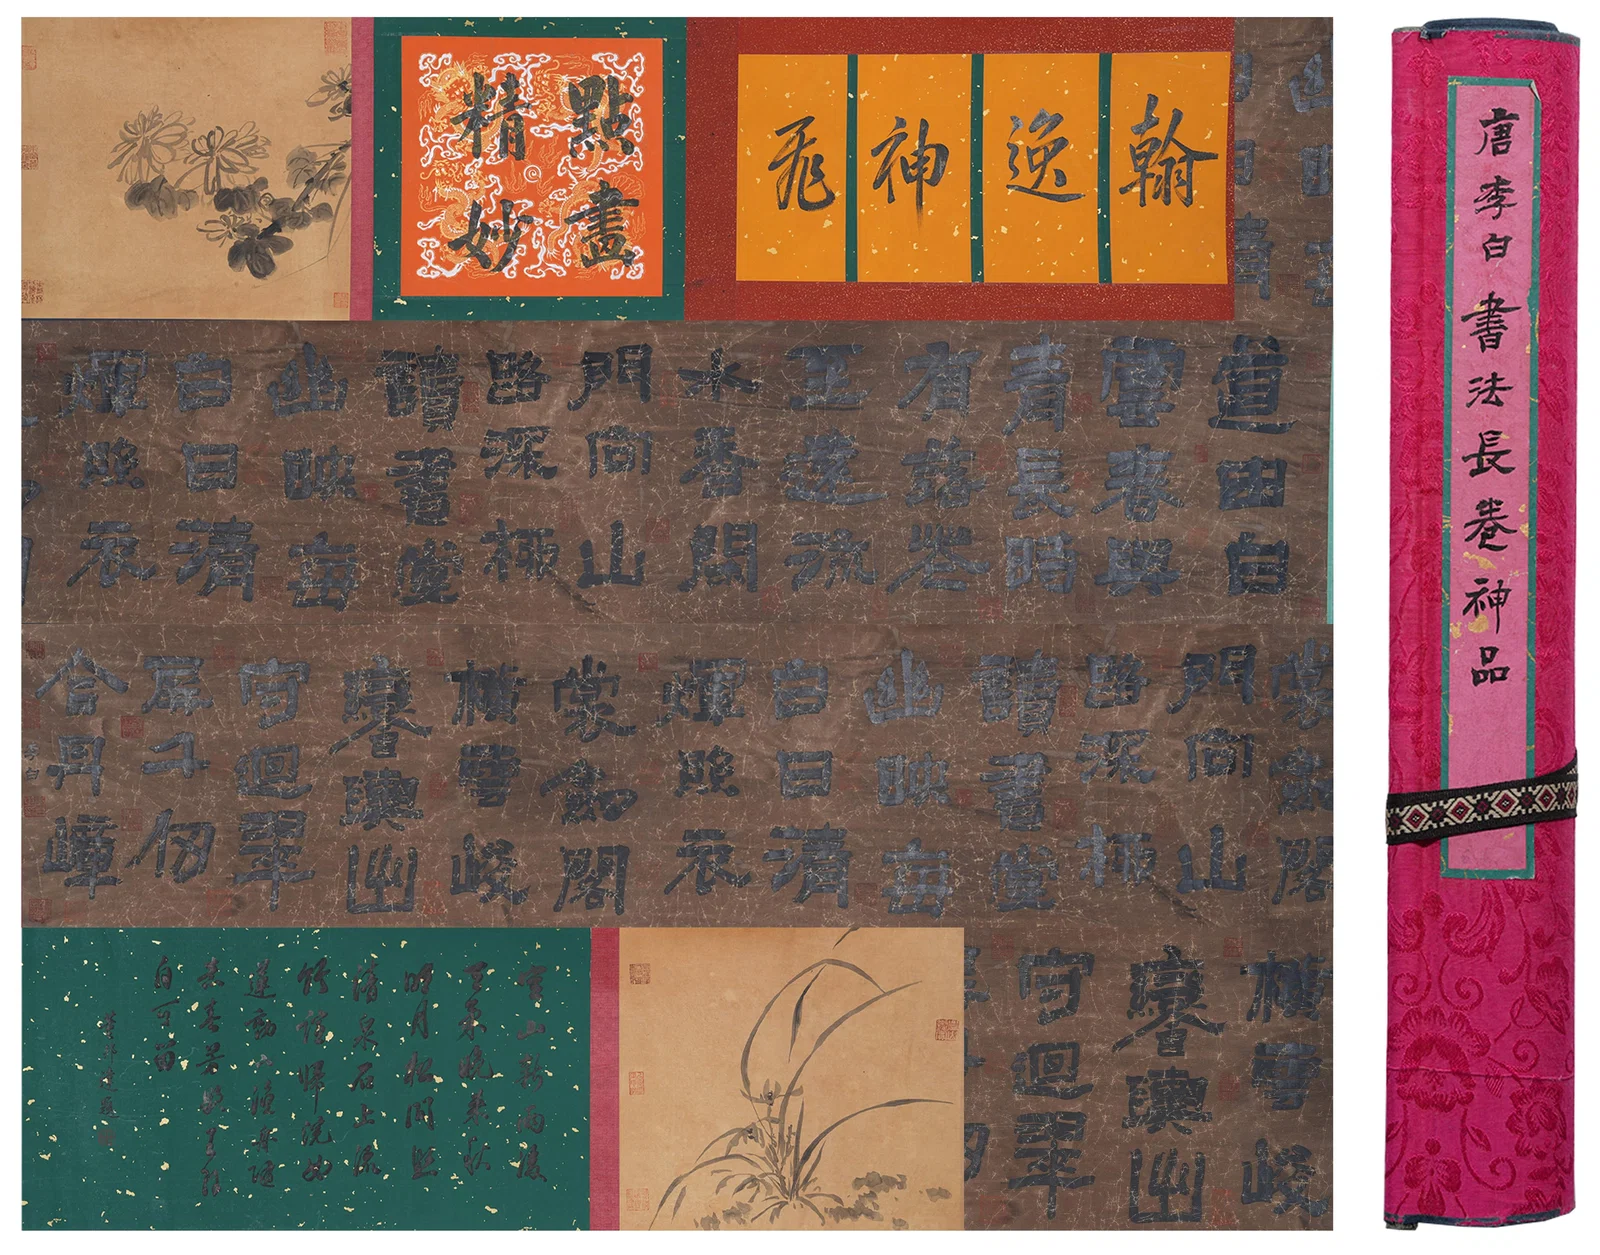 點畫
精妙
翰
逸
神
飛
道由白
雲春與
青長時
有落花
至遠流
水香閑
門向山
路深柳
讀書堂
幽映每
白日清
輝照衣
門向山
路深柳
讀書堂
幽映每
白日清
輝照衣
裳劍閣
橫雲峻
鑾輿出
狩迴翠
屏千仞
合丹嶂
橫雲峻
鑾輿出
狩迴翠
空山新雨後
天氣晚來秋
明月松間照
清泉石上流
竹喧歸浣女
蓮動下漁舟隨
意春芳歇王孫
自可留
唐李白書法長卷神品